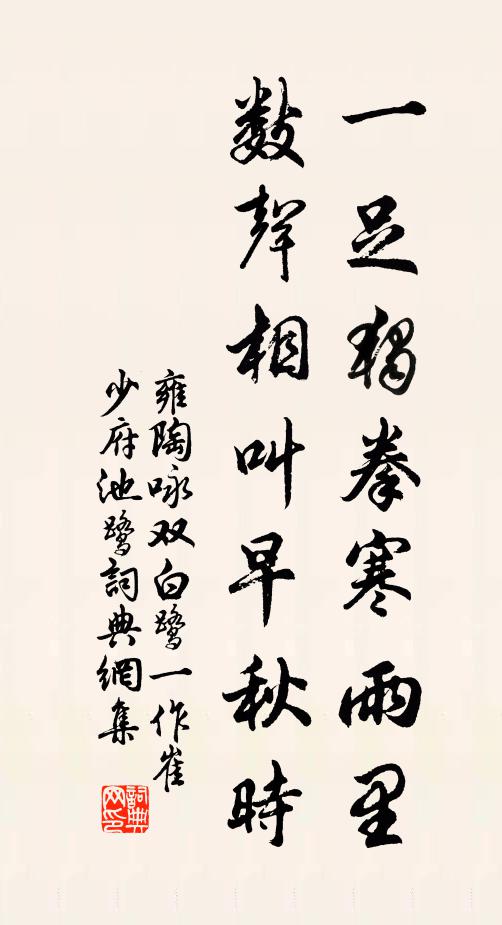 一足独拳寒雨里
数声相叫早秋時
雍陶咏双白鹭一作崔
少府池鹭詞典網集
詞典网印